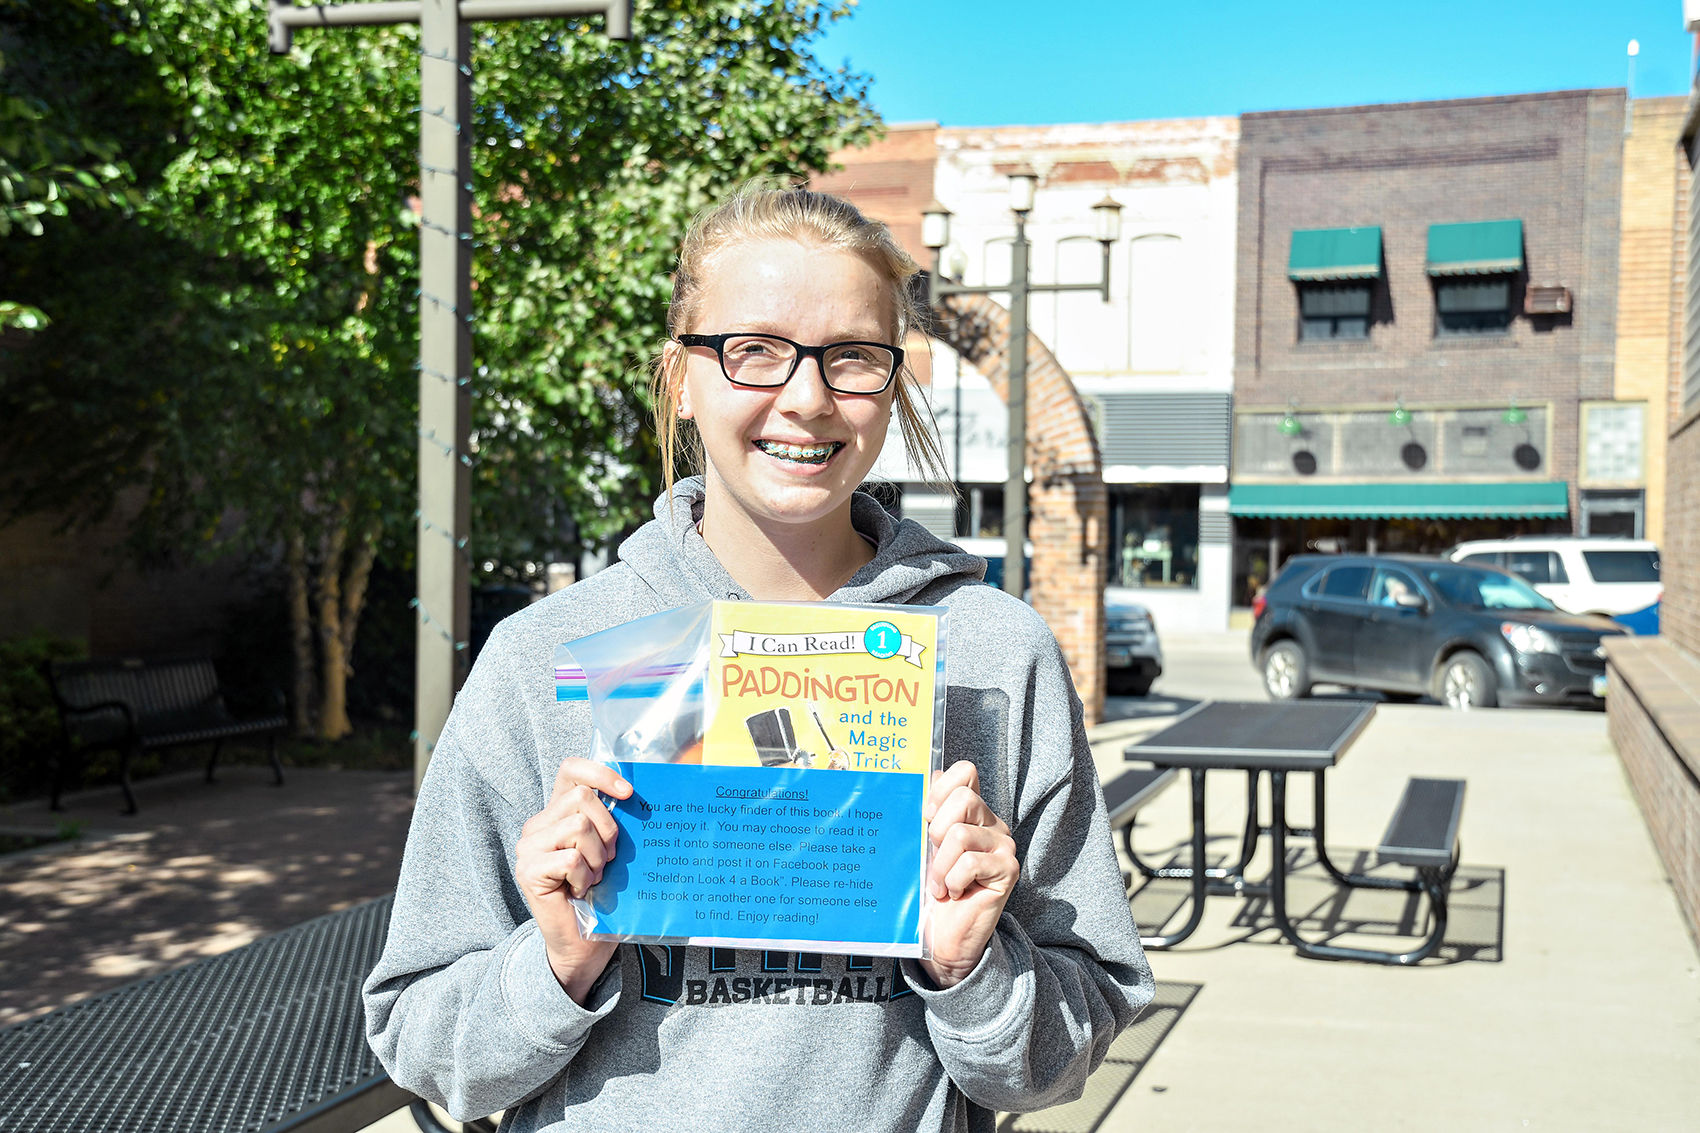 I Can Read!
1
PADDINGTON
and the
Magic
Trick
Congratulations!
You are the lucky finder of this book. I hope
you enjoy it. You may choose to read it or
pass it onto someone else. Please take a
photo and post it on Facebook page
“Sheldon Look 4 a Book”. Please re-hide
this book or another one for someone else
to find. Enjoy reading!
BASKETBALL